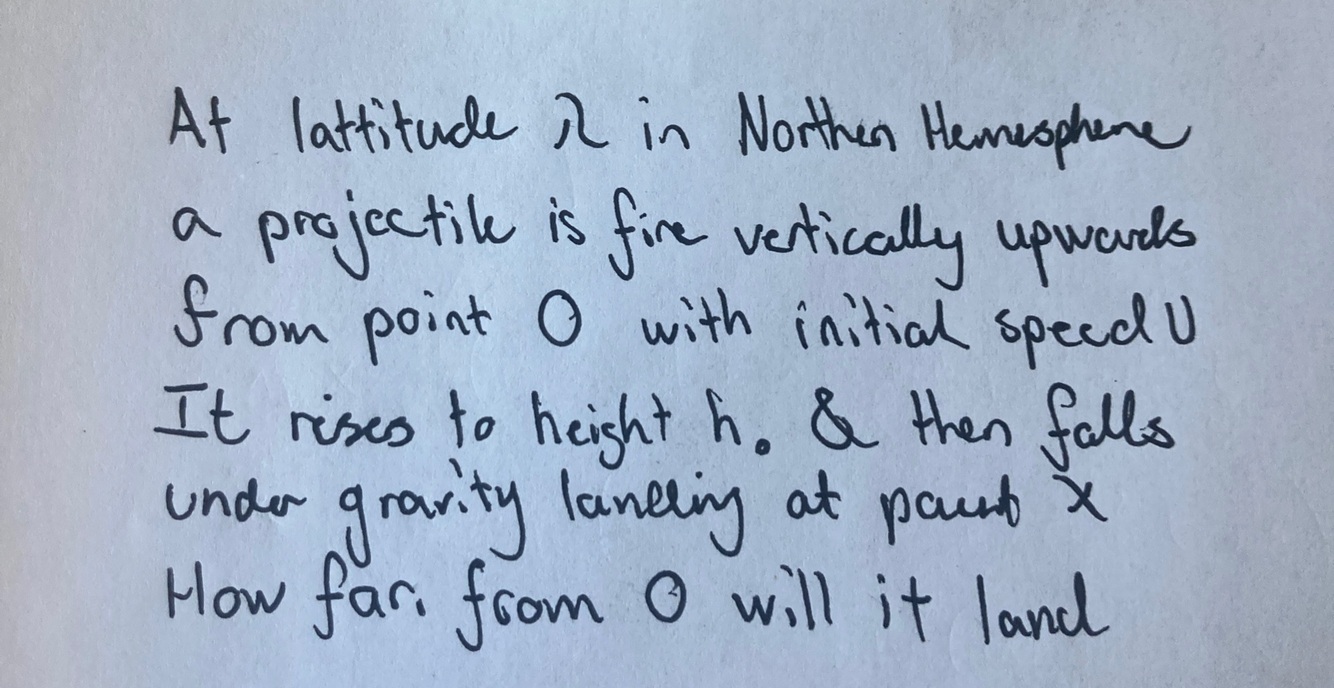 At lattitude λ in Northen Hemesphere
a projectile is fire vertically upwards
from point O with initial speed U
It rises to height h. & then falls
under gravity landing at point X
How far. from O will it land